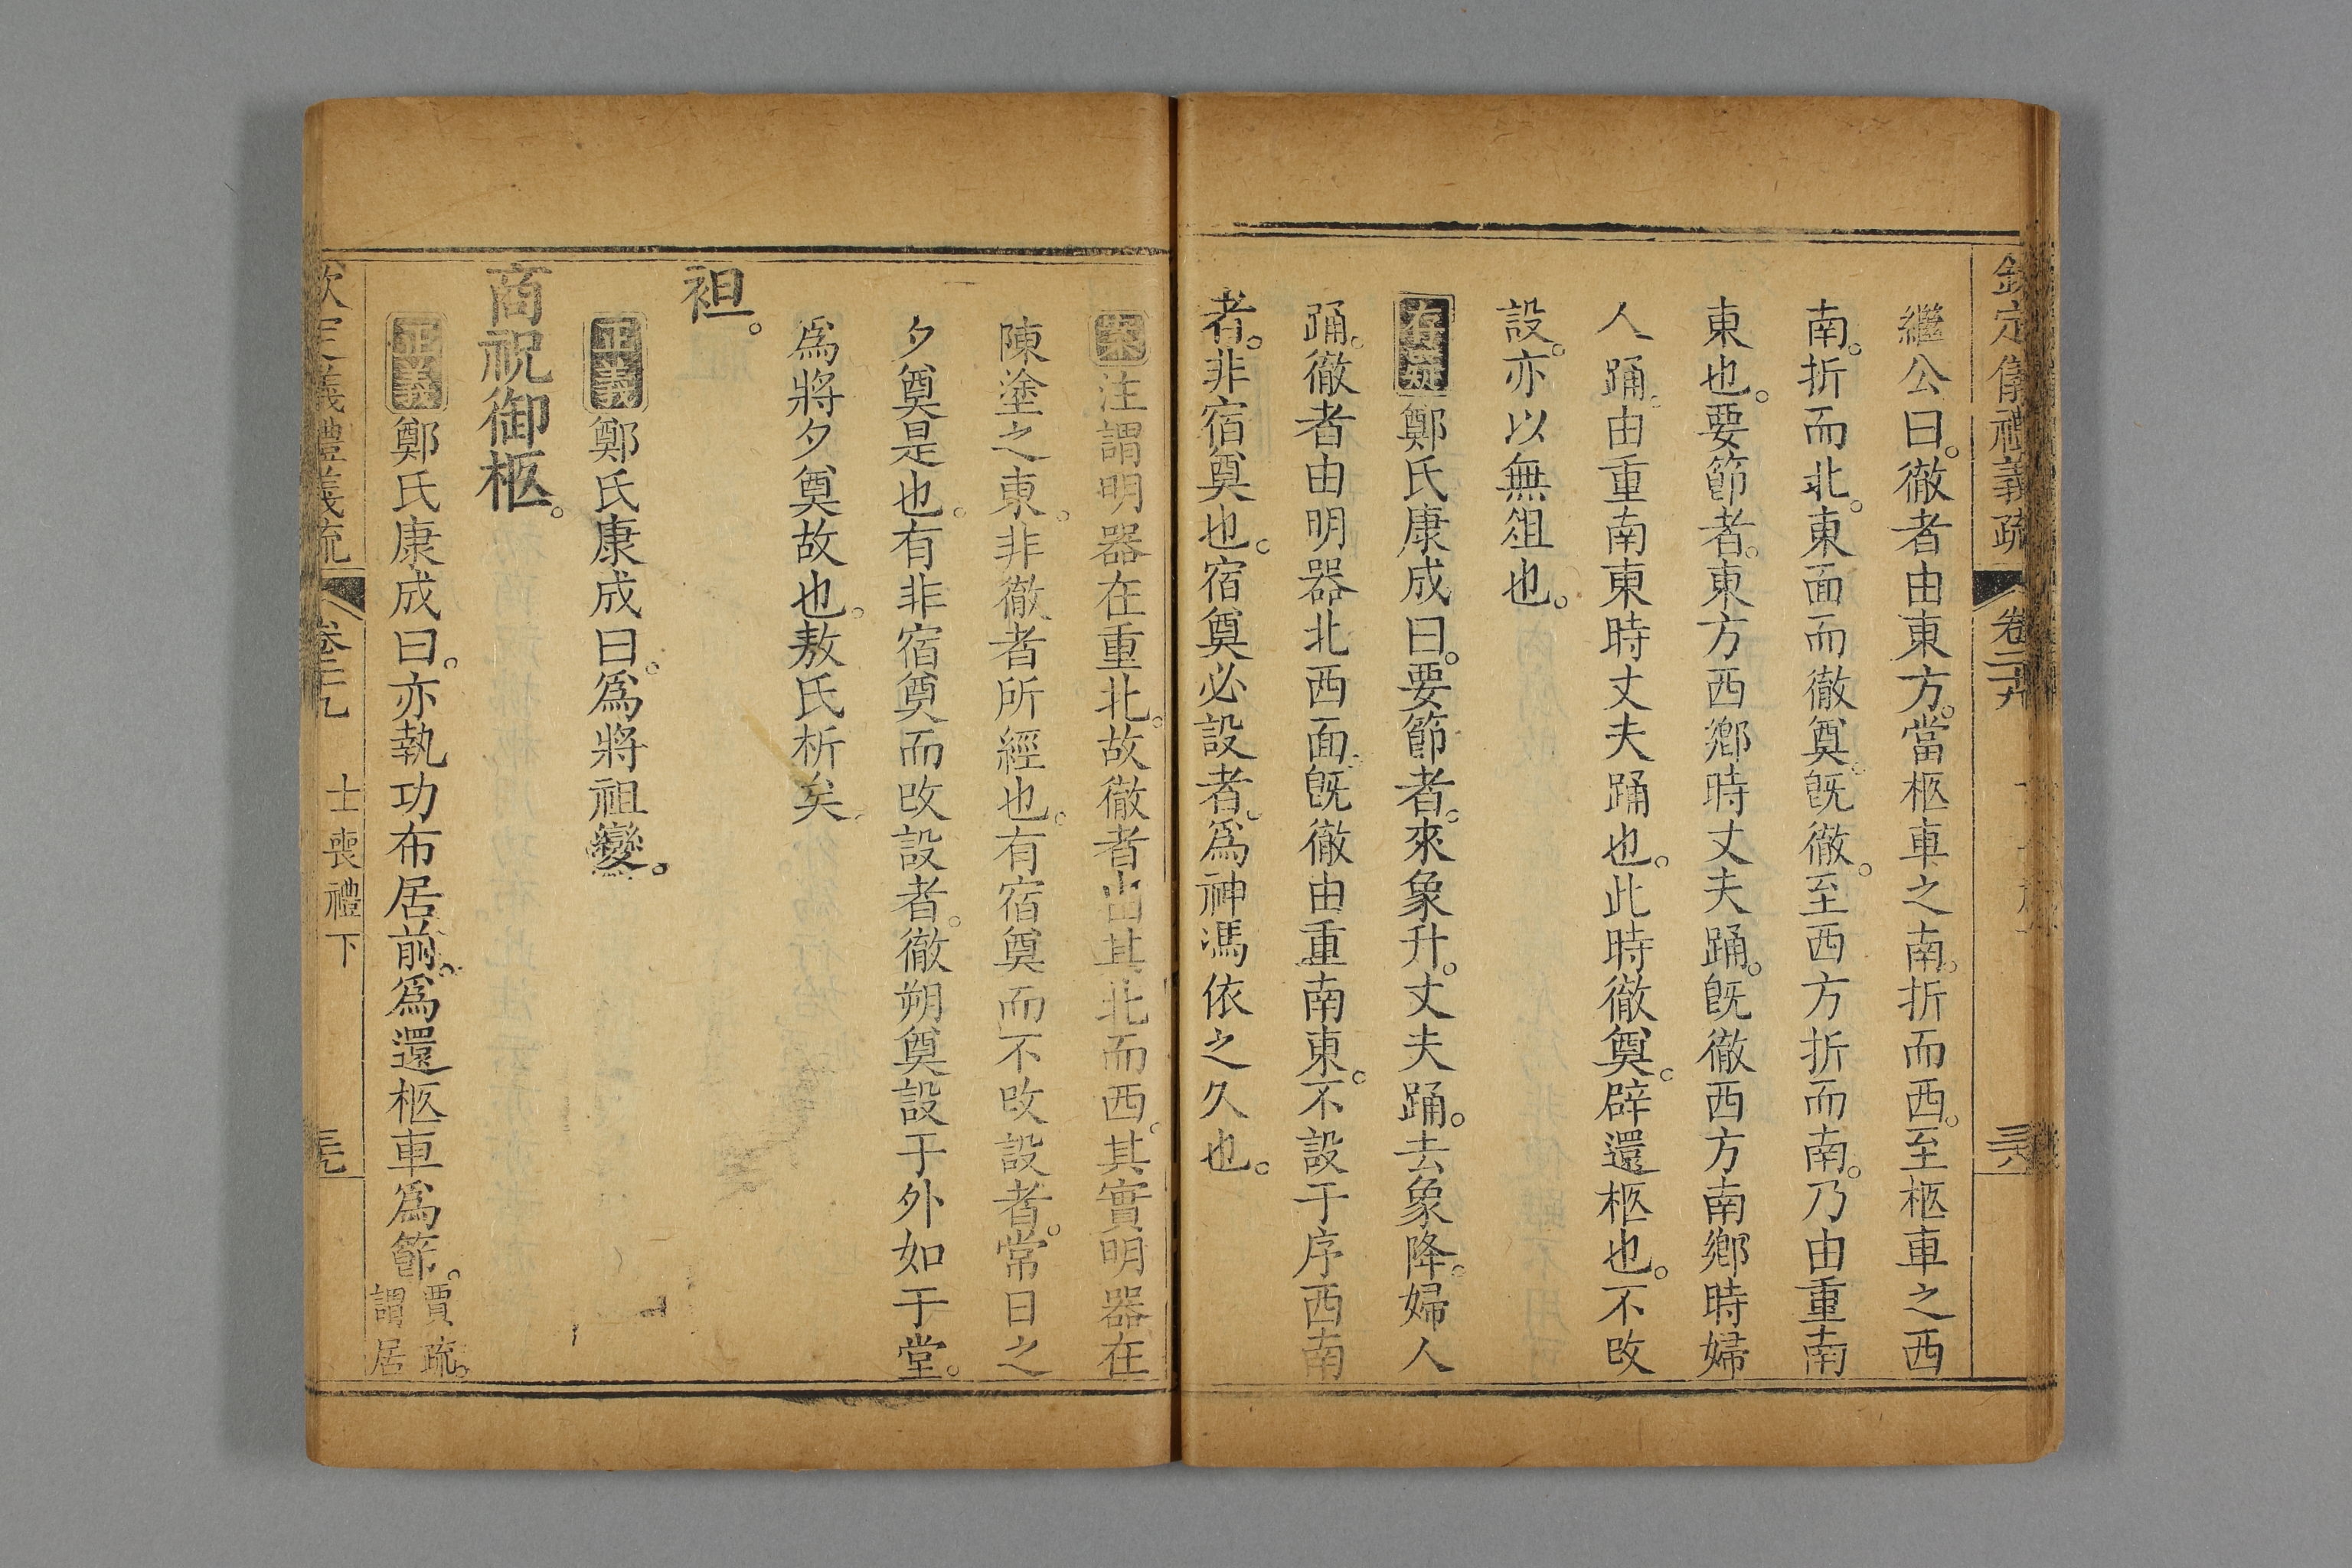 欽定儀禮義疏 卷二十九 三六
繼公曰。徹者由東方。當柩車之南。折而西。至柩車之西
南。折而北。東面而徹奠。旣徹。至西方折而南。乃由重南
東也。要節者。東方西鄉時丈夫踊。旣徹西方南鄉時婦
人踊。由重南東時丈夫踊也。此時徹奠。辟還柩也。不改
設。亦以無俎也。
存疑 鄭氏康成曰。要節者。來象升。丈夫踊。去象降。婦人
踊。徹者由明器北西面。旣徹由重南東。不設于序西南
者。非宿奠也。宿奠必設者。爲神馮依之久也。
案 注謂明器在重北。故徹者出其北而西。其實明器在
陳塗之東。非徹者所經也。有宿奠而不改設者。常日之
夕奠是也。有非宿奠而改設者。徹朔奠設于外如于堂。
爲將夕奠故也。敖氏析矣
袒。
正義 鄭氏康成曰。爲將祖變。
商祝御柩。
正義 鄭氏康成曰。亦執功布居前。爲還柩車爲節。賈疏。
謂居
欽定儀禮義疏 卷二十九 士喪禮下